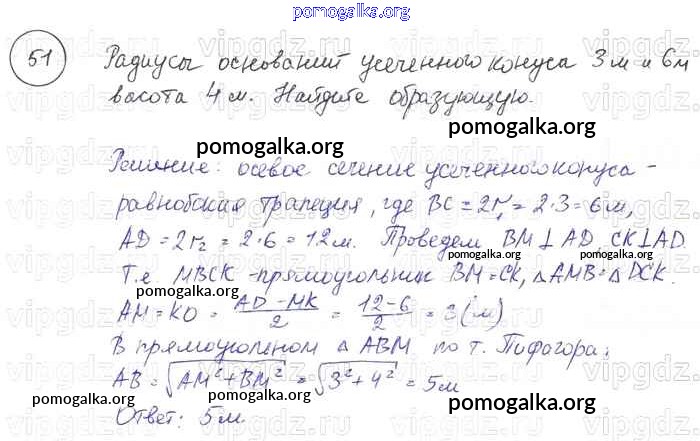 pomogalka.org
51 Радиусы оснований усеченного конуса 3 м и 6 м
pomogalka.org
васота 4 м. Найдите образующую.
pomogalka.org
Решение: осевое сечение усеченного конуса -
pomogalka.org
равнобокая трапеция, где BC = 2r₁ = 2·3 = 6 м,
AD = 2r₂ = 2·6 = 12 м. Проведем BM ⊥ AD, CK ⊥ AD.
pomogalka.org
Т.е MBCK - прямоугольник BM = CK, △AMB = △DCK.
pomogalka.org
AM = KD = (AD - MK)/2 = (12 - 6)/2 = 3 (м)
pomogalka.org
В прямоугольном △ ABM по т. Пифагора:
AB = √(AM² + BM²) = √(3² + 4²) = 5 м
pomogalka.org pomogalka.org
Ответ: 5 м.
pomogalka.org
vipgdz.com